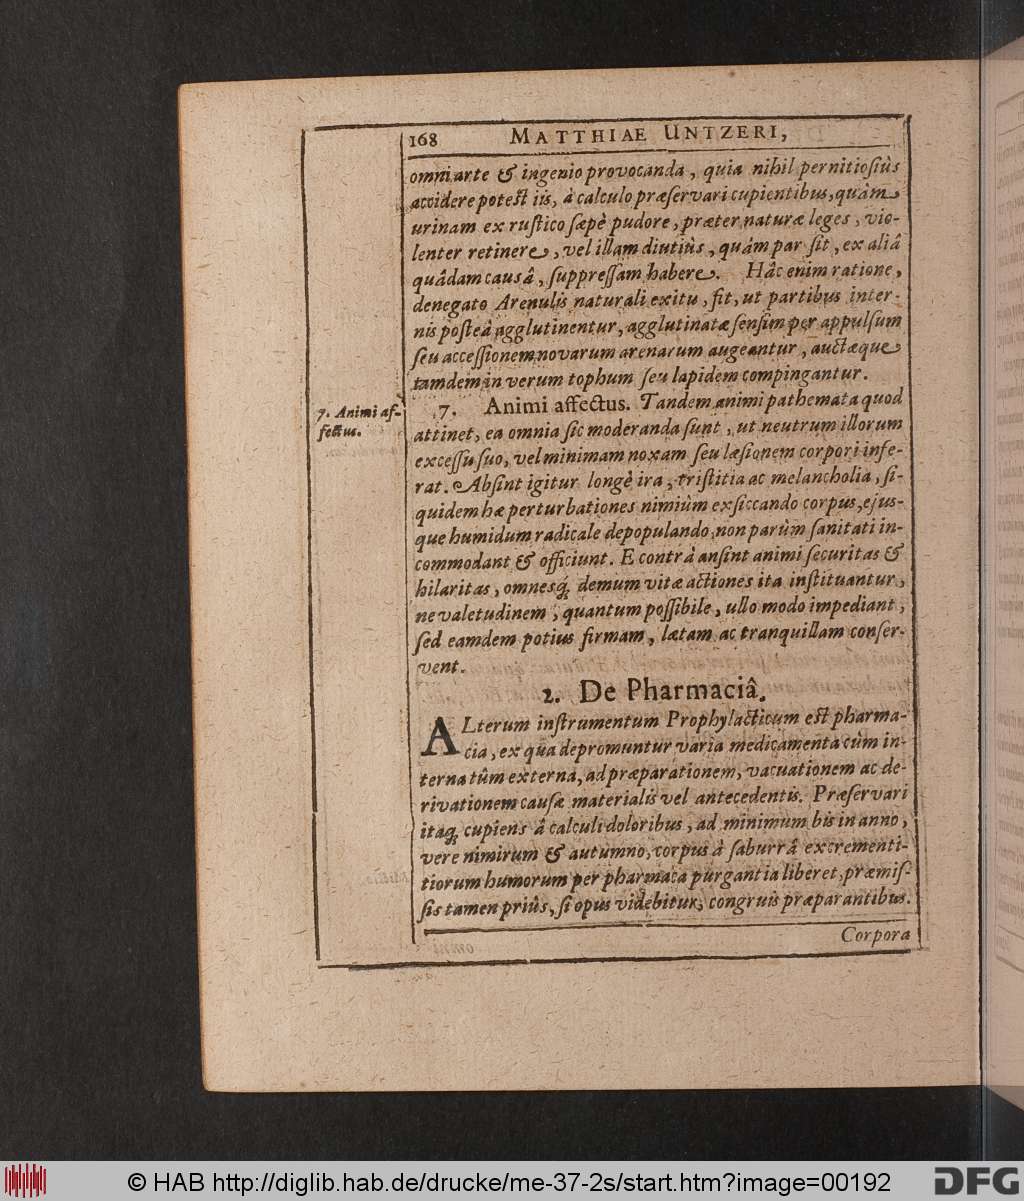 168 MATTHIAE UNTZERI,
omni arte & ingenio provocanda, quia nihil pernitiosiùs
accidere potest iis, à calculo præservari cupientibus, quàm
urinam ex rustico sæpè pudore, præter naturæ leges, vio-
lenter retinere, vel illam diutiùs, quám par sit, ex aliâ
quâdam causâ, suppressam habere. Hâc enim ratione,
denegato Arenulis naturali exitu, fit, ut partibus inter-
nis posteà agglutinentur, agglutinatæ sensim per appulsum
seu accessionem novarum arenarum augeantur, auctæque
tamdem in verum tophum seu lapidem compingantur.
7. Animi af-
fectus.
7. Animi affectus. Tandem animi pathemata quod
attinet, ea omnia sic moderanda sunt, ut neutrum illorum
excessu suo, vel minimam noxam seu læsionem corpori infe-
rat. Absint igitur longè ira, tristitia ac melancholia, si-
quidem hæ perturbationes nimiùm exsiccando corpus, ejus-
que humidum radicale depopulando, non parùm sanitati in-
commodant & officiunt. E contrà ansint animi securitas &
hilaritas, omnesq́; demum vitæ actiones ita instituantur,
ne valetudinem, quantum possibile, ullo modo impediant,
sed eamdem potius firmam, lætam ac tranquillam conser-
vent.
2. De Pharmaciâ.
ALterum instrumentum Prophylacticum est pharma-
cia, ex qua depromuntur varia medicamenta cùm in-
terna tûm externa, ad præparationem, vacuationem ac de-
rivationem causæ materialis vel antecedentis. Præservari
itaq; cupiens â calculi doloribus, ad minimum bis in anno,
vere nimirum & autumno, corpus à saburrâ excrementi-
tiorum humorum per pharmaca purgantia liberet, præmis-
sis tamen priûs, si opus videbitur, congruis præparantibus.
Corpora
© HAB http://diglib.hab.de/drucke/me-37-2s/start.htm?image=00192
DFG